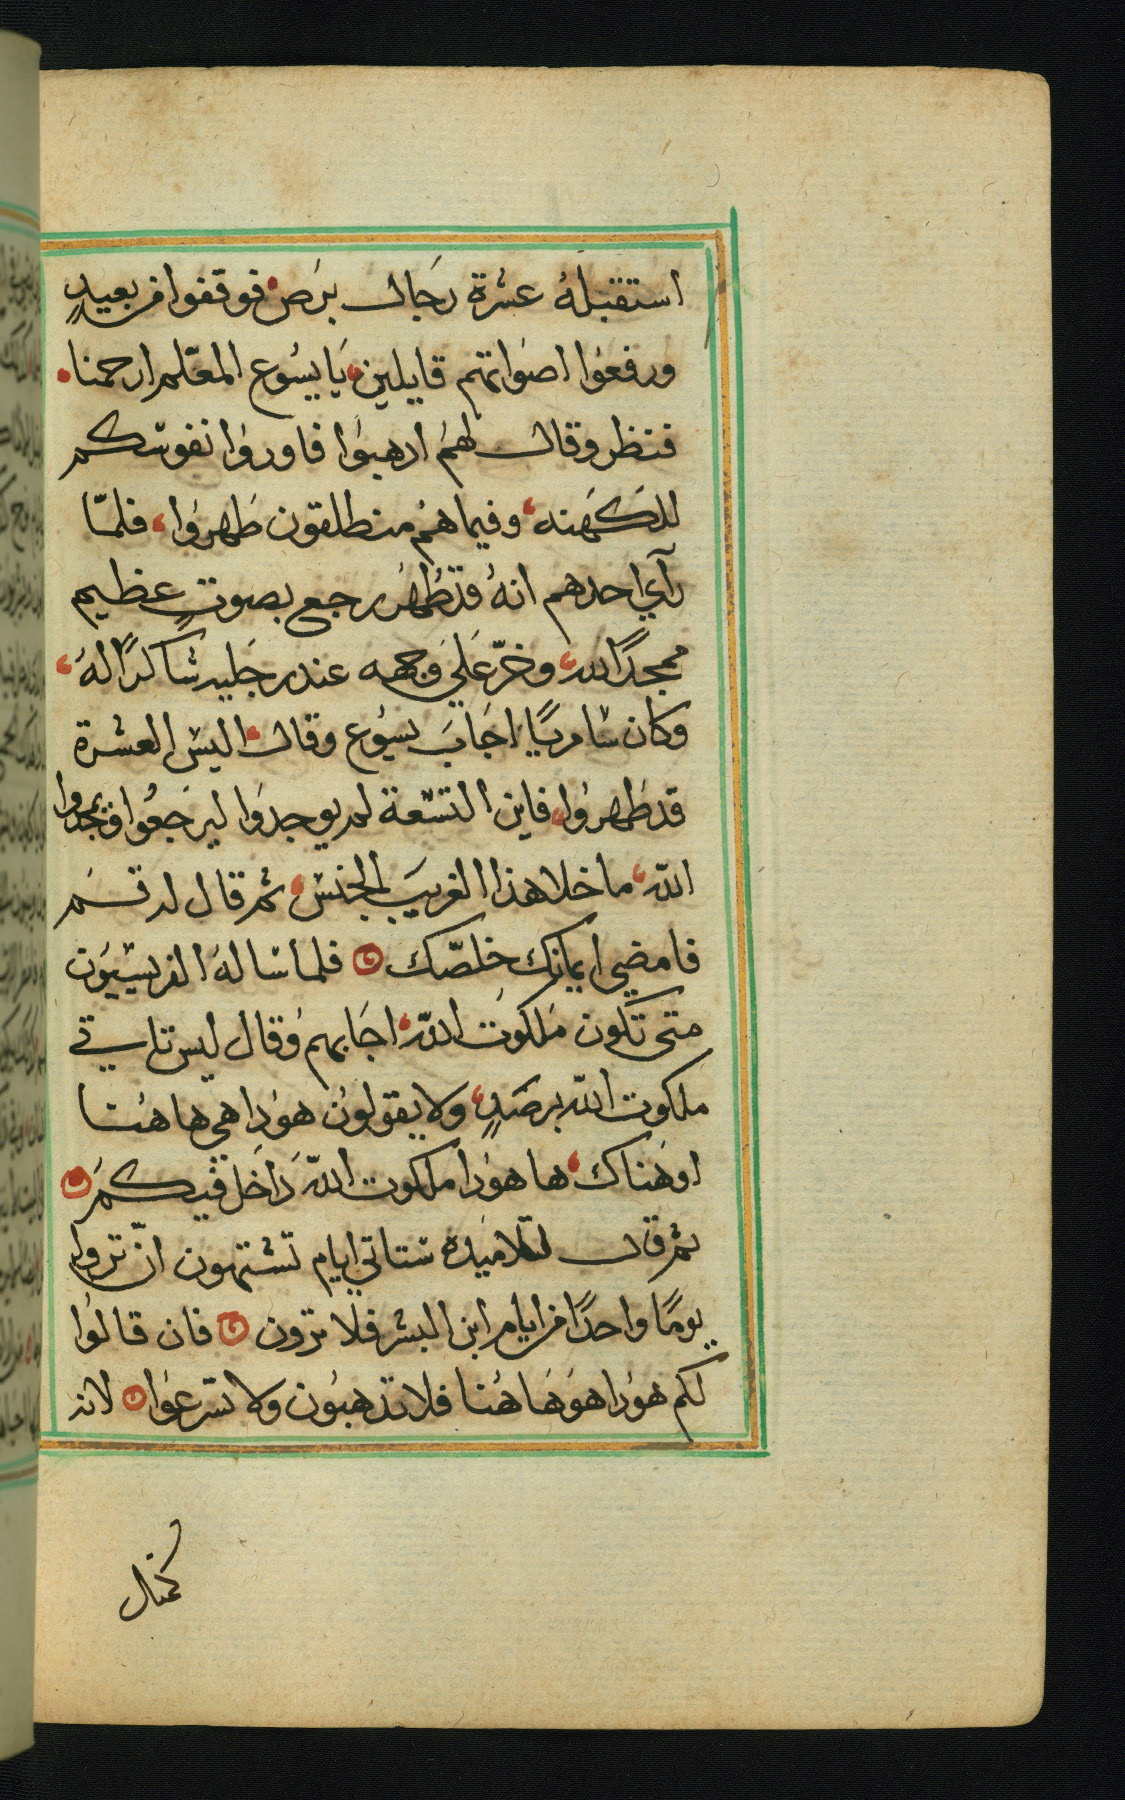 استقبلهُ عشرة رجَال برَص فوقفوا من بعيدٍ
ورفعوا اصواتهم قايلين يَا يسُوع المعّلم ارحمنا
فنظر وقال لهمُ ادهبوُا فاوروُا نفوسكم
للكَهَنه وفيما همُ منطلقون طَهروُا فلمّا
رآي احدهم انهُ قد طُهُر رجع بصوتٍ عظيم
ممجدًا لله وخرّ عَلي وجهه عند رجَليه شاكرًا لهَ
وكان سَامريًا اجَابَ يسُوع وقال اليس العشرة
قد طَهروُا فاين التسْعة لم يوجدَوا ليرجَعُوا ويمجدوا
اللّه ما خلا هذا الغريبَ الجنس ثم قال له قم
فامضي ايمانك خلصّك فلما سَالهَ الفريسَيوُن
متى تَكون مَلكوَت اللّه اجَابهم وُقال ليس تاتي
ملكوت اللّه برصَدٍ ولا يقولوُن هوُدا هي هاهُنا
اوهَناك ها هوُدا ملكوت اللّه دَاخَل فيكمَ
ثم قال لتلاميده ستاتي ايام تشتهون انّ تروا
يومًا واحدًا من ايام ابن البشر فلا ترون فان قالوُا
لكم هوُدا هوَ هَا هُنا فلا تدهبوُن ولا تسّرعوُا لانه
كمثال